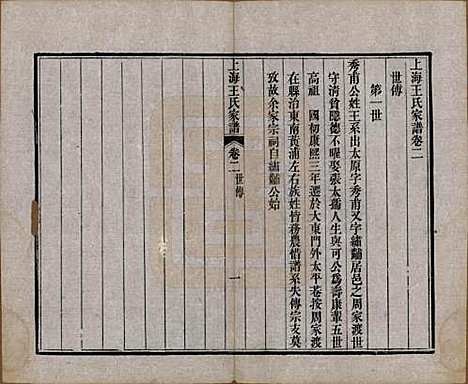 上海王氏家譜卷二
世傳
第一世
秀甫公姓王系出太原字秀甫又字繡黼居邑之周家渡世
守清貧隱德不曜娶張太孺人生與可公爲壽康輩五世
高祖 國初康熙三年遷於大東門外太平菴按周家渡
在縣治東南黃浦左右族姓皆務農惜譜系失傳宗支莫
致故余家宗祠自繡黼公始
上海王氏家譜 卷二 世傳 一